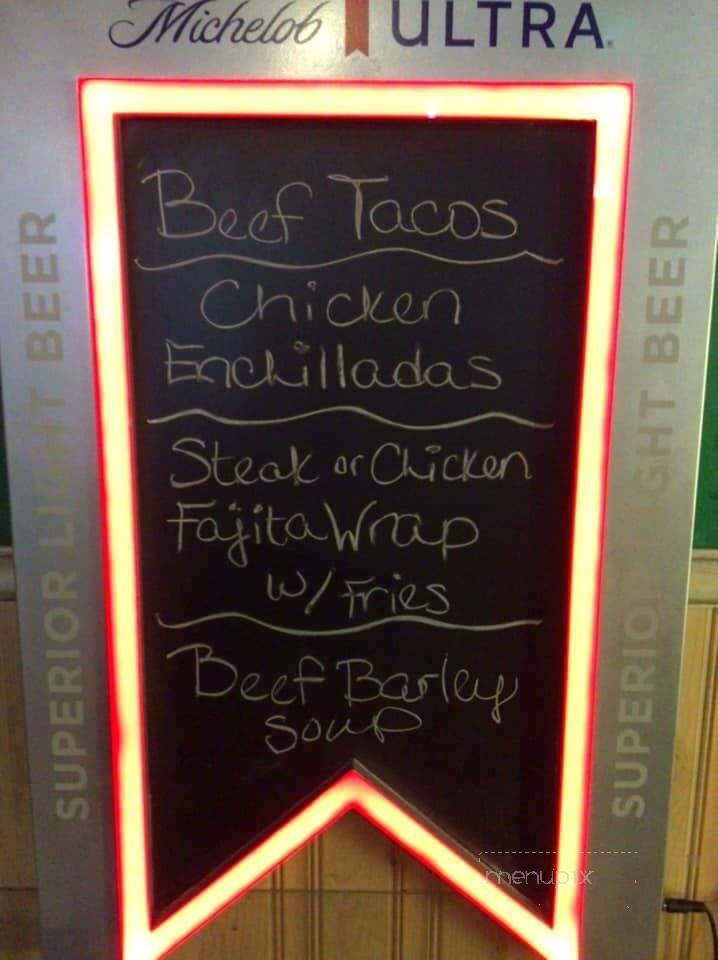 Michelob ULTRA
SUPERIOR LIGHT BEER
Beef Tacos
Chicken
Enchilladas
Steak or Chicken
Fajita Wrap
w/ Fries
Beef Barley
Soup
SUPERIOR LIGHT BEER
menupix